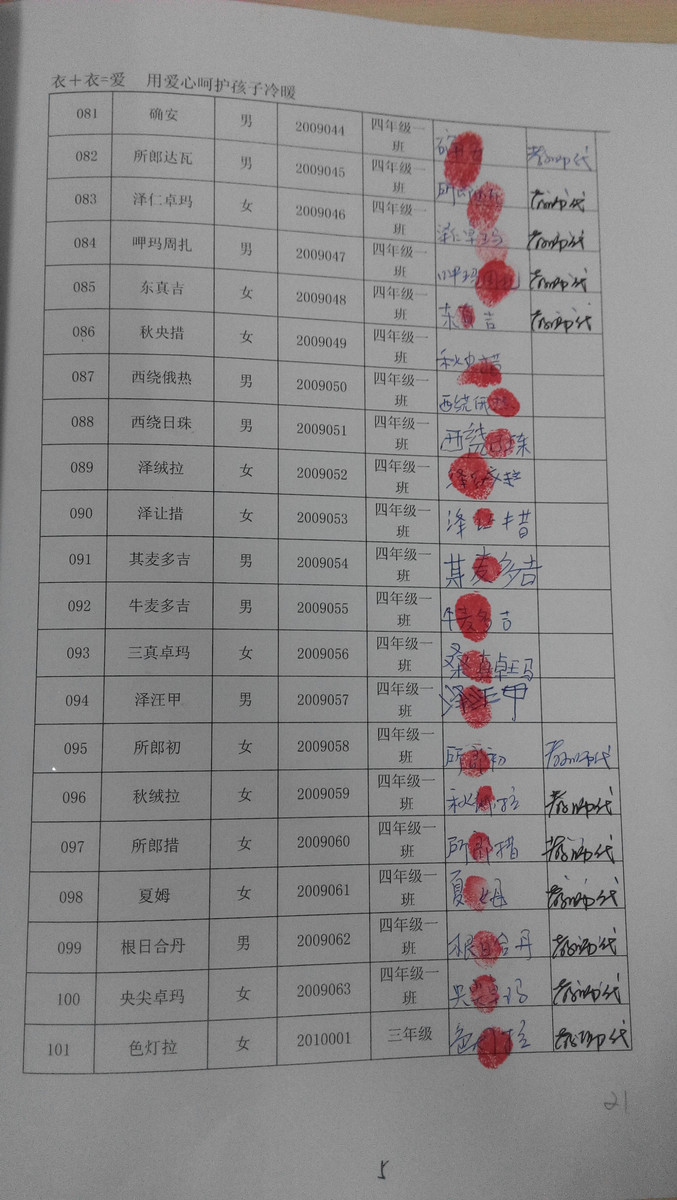 衣+衣=爱 用爱心呵护孩子冷暖
081 确安 男 2009044 四年级一班 教师代
082 所郎达瓦 男 2009045 四年级一班 所郎达瓦 教师代
083 泽仁卓玛 女 2009046 四年级一班 泽仁卓玛 教师代
084 呷玛周扎 男 2009047 四年级一班 呷玛周扎 教师代
085 东真吉 女 2009048 四年级一班 东真吉 教师代
086 秋央措 女 2009049 四年级一班 秋央措
087 西绕俄热 男 2009050 四年级一班 西绕俄热
088 西绕日珠 男 2009051 四年级一班 西绕日珠
089 泽绒拉 女 2009052 四年级一班 泽绒拉
090 泽让措 女 2009053 四年级一班 泽让措
091 其麦多吉 男 2009054 四年级一班 其麦多吉
092 牛麦多吉 男 2009055 四年级一班 牛麦多吉
093 三真卓玛 女 2009056 四年级一班 桑真卓玛
094 泽汪甲 男 2009057 四年级一班 泽汪甲
095 所郎初 女 2009058 四年级一班 所郎初 教师代
096 秋绒拉 女 2009059 四年级一班 秋绒拉 教师代
097 所郎措 女 2009060 四年级一班 所郎措 教师代
098 夏姆 女 2009061 四年级一班 夏姆 教师代
099 根日合丹 男 2009062 四年级一班 根日合丹 教师代
100 央尖卓玛 女 2009063 四年级一班 教师代
101 色灯拉 女 2010001 三年级 色灯拉 教师代
21
5